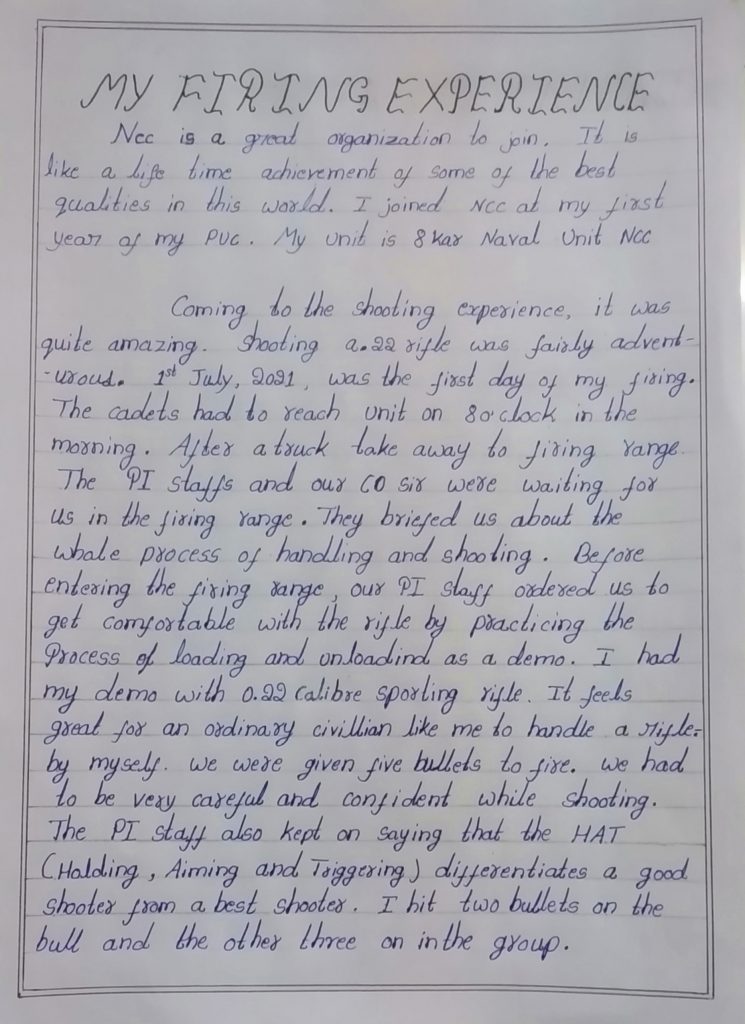 MY FIRING EXPERIENCE
Ncc is a great organization to join. It is
like a life time achievement of some of the best
qualities in this world. I joined NCC at my first
year of my PUC. My unit is 8 Kar Naval Unit NCC
Coming to the shooting experience, it was
quite amazing. Shooting a .22 rifle was fairly advent-
-urous. 1st July, 2021, was the first day of my firing.
The cadets had to reach unit on 8 o'clock in the
morning. After a truck take away to firing range.
The PI staffs and our CO sir were waiting for
us in the firing range. They briefed us about the
whole process of handling and shooting. Before
entering the firing range, our PI staff ordered us to
get comfortable with the rifle by practicing the
Process of loading and onloadind as a demo. I had
my demo with 0.22 calibre sporting rifle. It feels
great for an ordinary civillian like me to handle a rifle.
by myself. we were given five bullets to fire. we had
to be very careful and confident while shooting.
The PI staff also kept on saying that the HAT
(Holding, Aiming and Triggering) differentiates a good
shooter from a best shooter. I hit two bullets on the
bull and the other three on in the group.